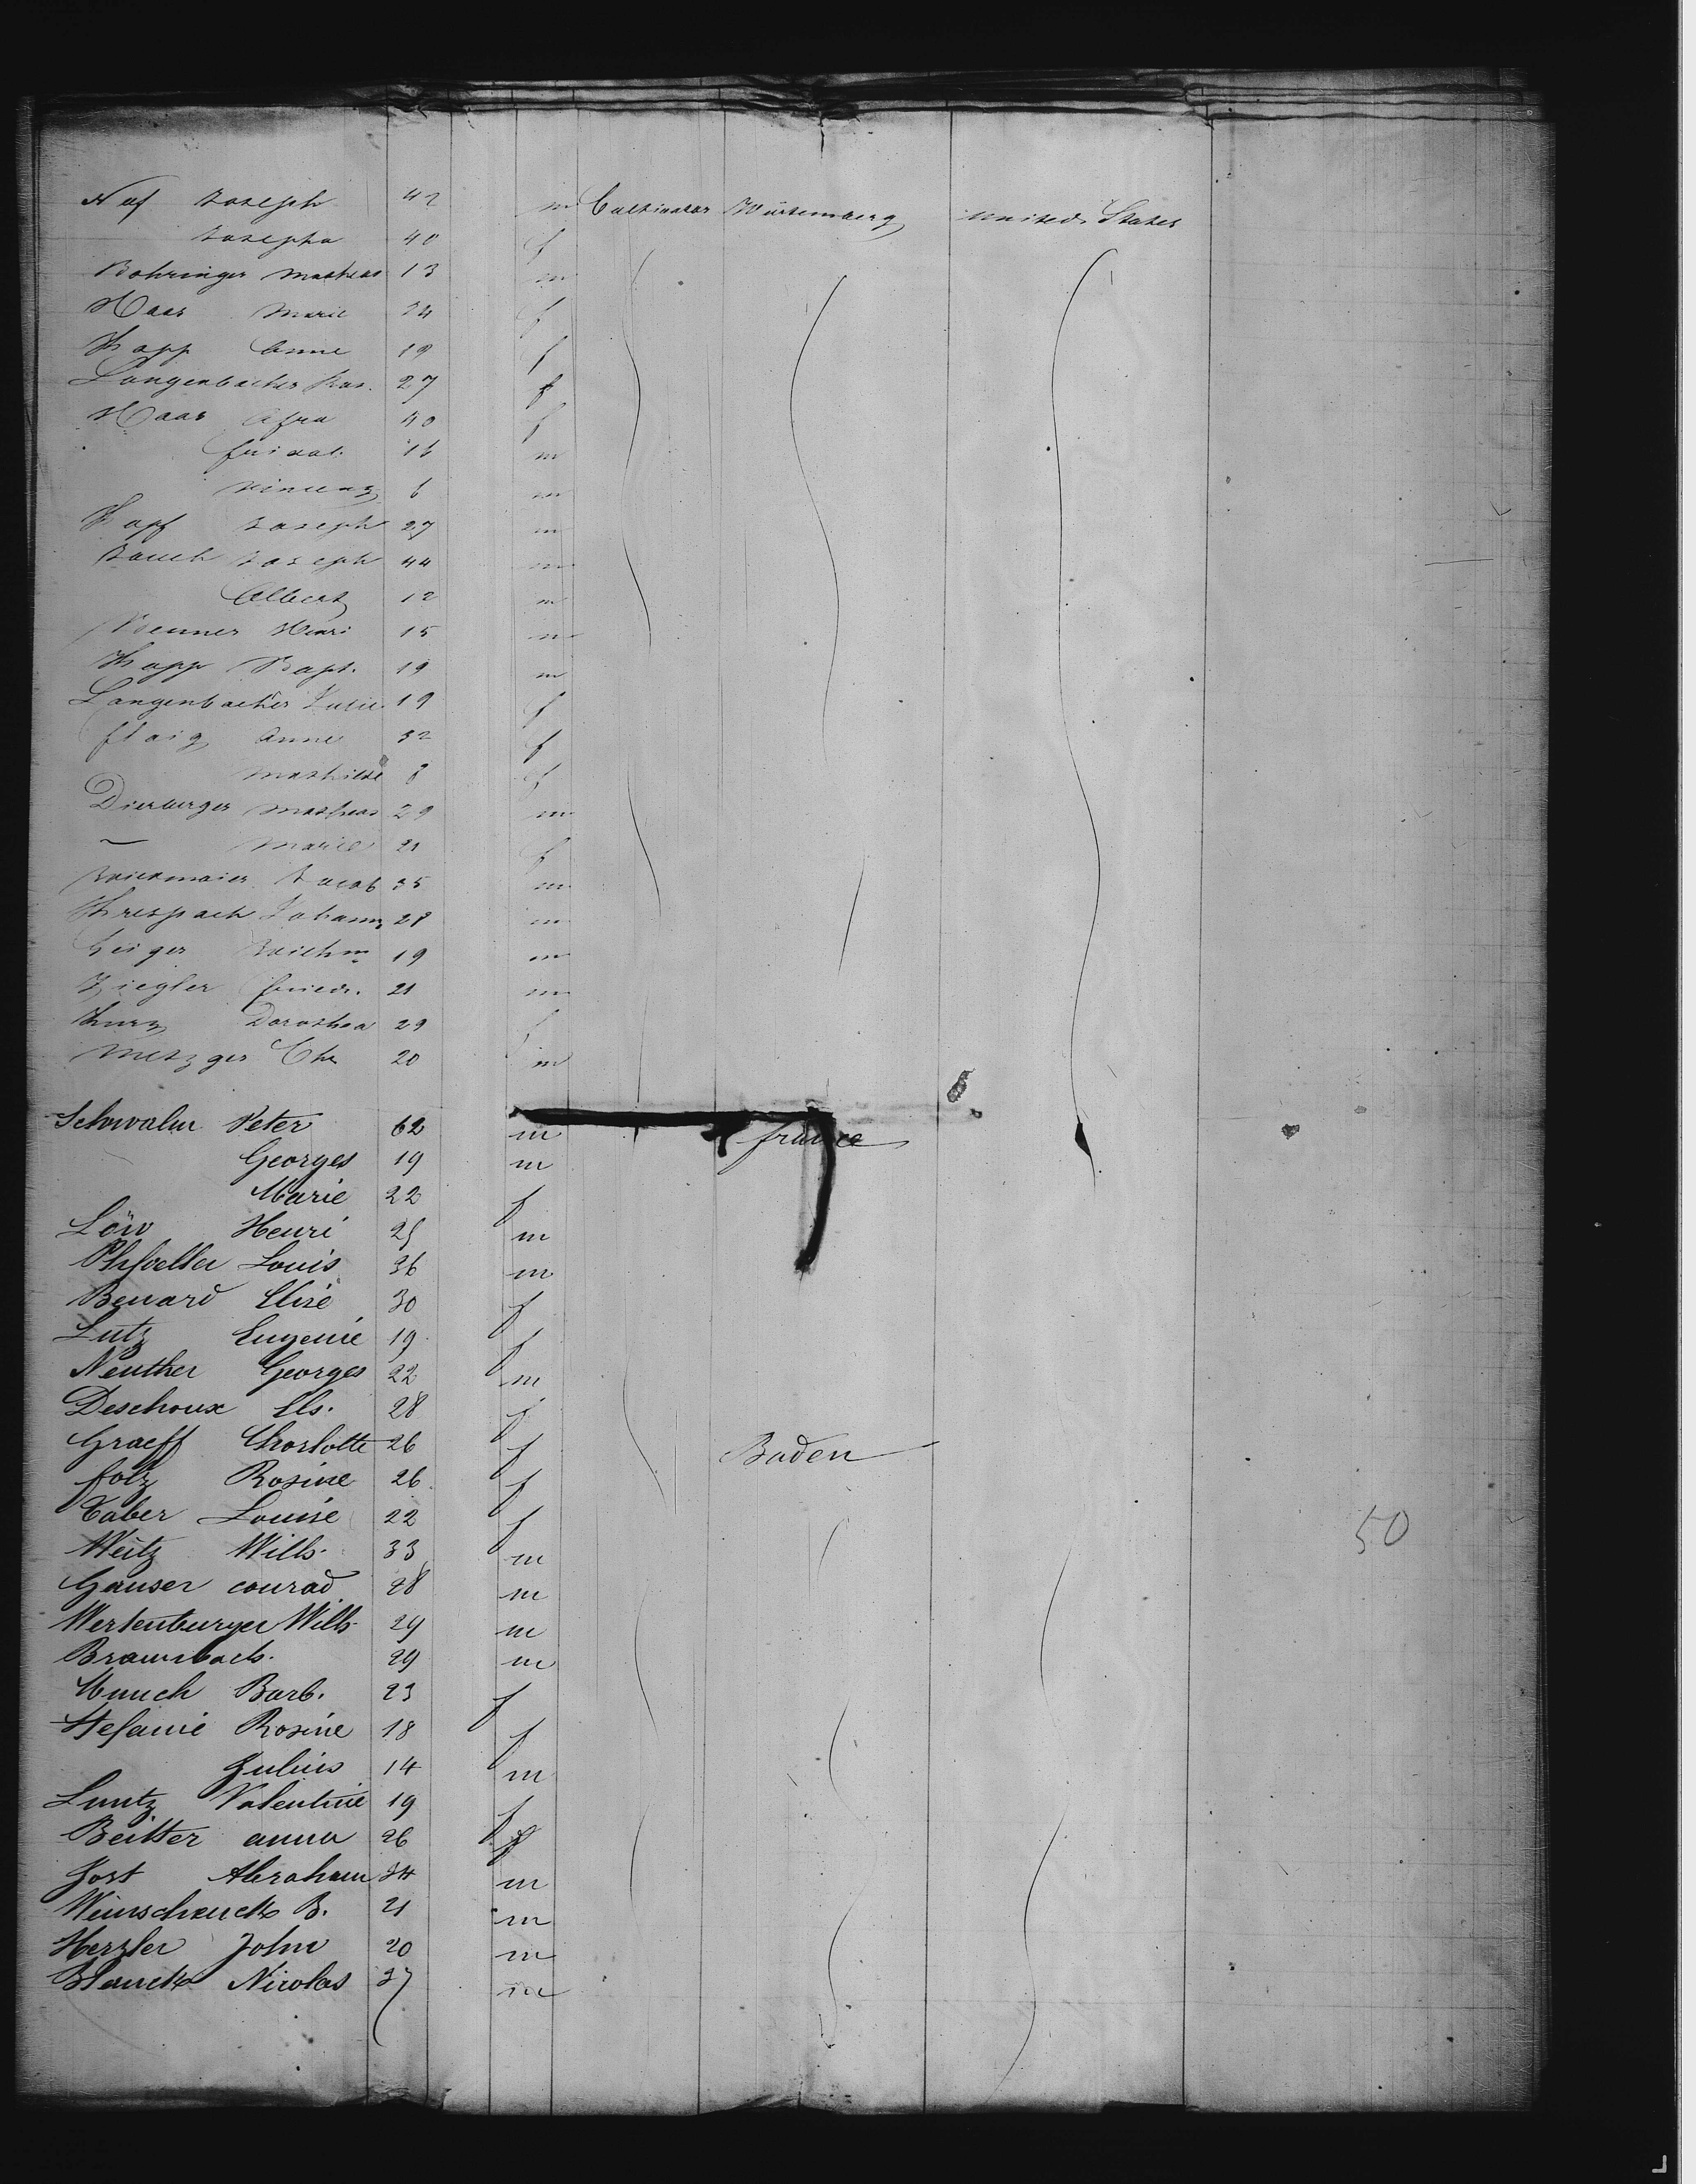 Naf Joseph 42 m Cultivator Würtemberg United States
Josepha 40 f
Bohringer Mathias 13 m
Haas Marie 24 f
Kopp Anne 19 f
Langenbacher 27 f
Haas Afra 40 f
m
Vincenz 6 m
Kopf Joseph 27 m
Joseph 44 m
Albert 12 m
Benner Henri 15 m
Kopp Bapt. 19 m
Langenbacher 19 f
Flaig Anne 32 f
Mathilde 8 f
Dierberger Mathias 29 m
Marie 21 f
Jacob 35 m
Krespach Johann 28 m
Geiger 19 m
Ziegler Friedr. 21 m
Kurz Dorothea 29 f
Metzger Chr 20 m
Schwalm Peter 62 m france
Georges 19 m
Marie 22 f
Löw Henri 25 m
Louis 36 m
Benard Elise 30 f
Lutz Eugenie 19 f
Neuther Georges 22 m
Deschoux Els. 28 f
Graeff Charlotte 26 f Baden
folz Rosine 26 f
Taber Louise 22 f
Weitz Wilh. 33 m
50
Ganser conrad 28 m
Wertenburger Wilh 29 m
29 m
Munch Barb. 23 f
Stefanie Rosine 18 f
Julius 14 m
Luntz Valentine 19 f
Beitter anna 26 f
Jost Abraham 34 m
Weinschenck B. 21 m
Herzler John 20 m
Blanck Nicolas 27 m